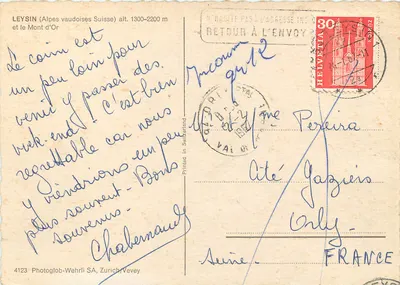 LEYSIN (Alpes vaudoises Suisse) alt. 1300-2200 m
et le Mont d'Or
RETOUR À L'ENVOY
30
HELVETIA
Inconnu
9412
Le coin est
un peu loin pour
venir y passer des
week-end! C'est bien
regrettable car nous
y viendrions un peu
plus souvent - Bons
souvenirs.
Chabernaud
Printed in Switzerland
ORLY
VAL
Mme Pereira
Cité Gaziers
Orly
Seine. FRANCE
4123 Photoglob-Wehrli SA, Zurich/Vevey